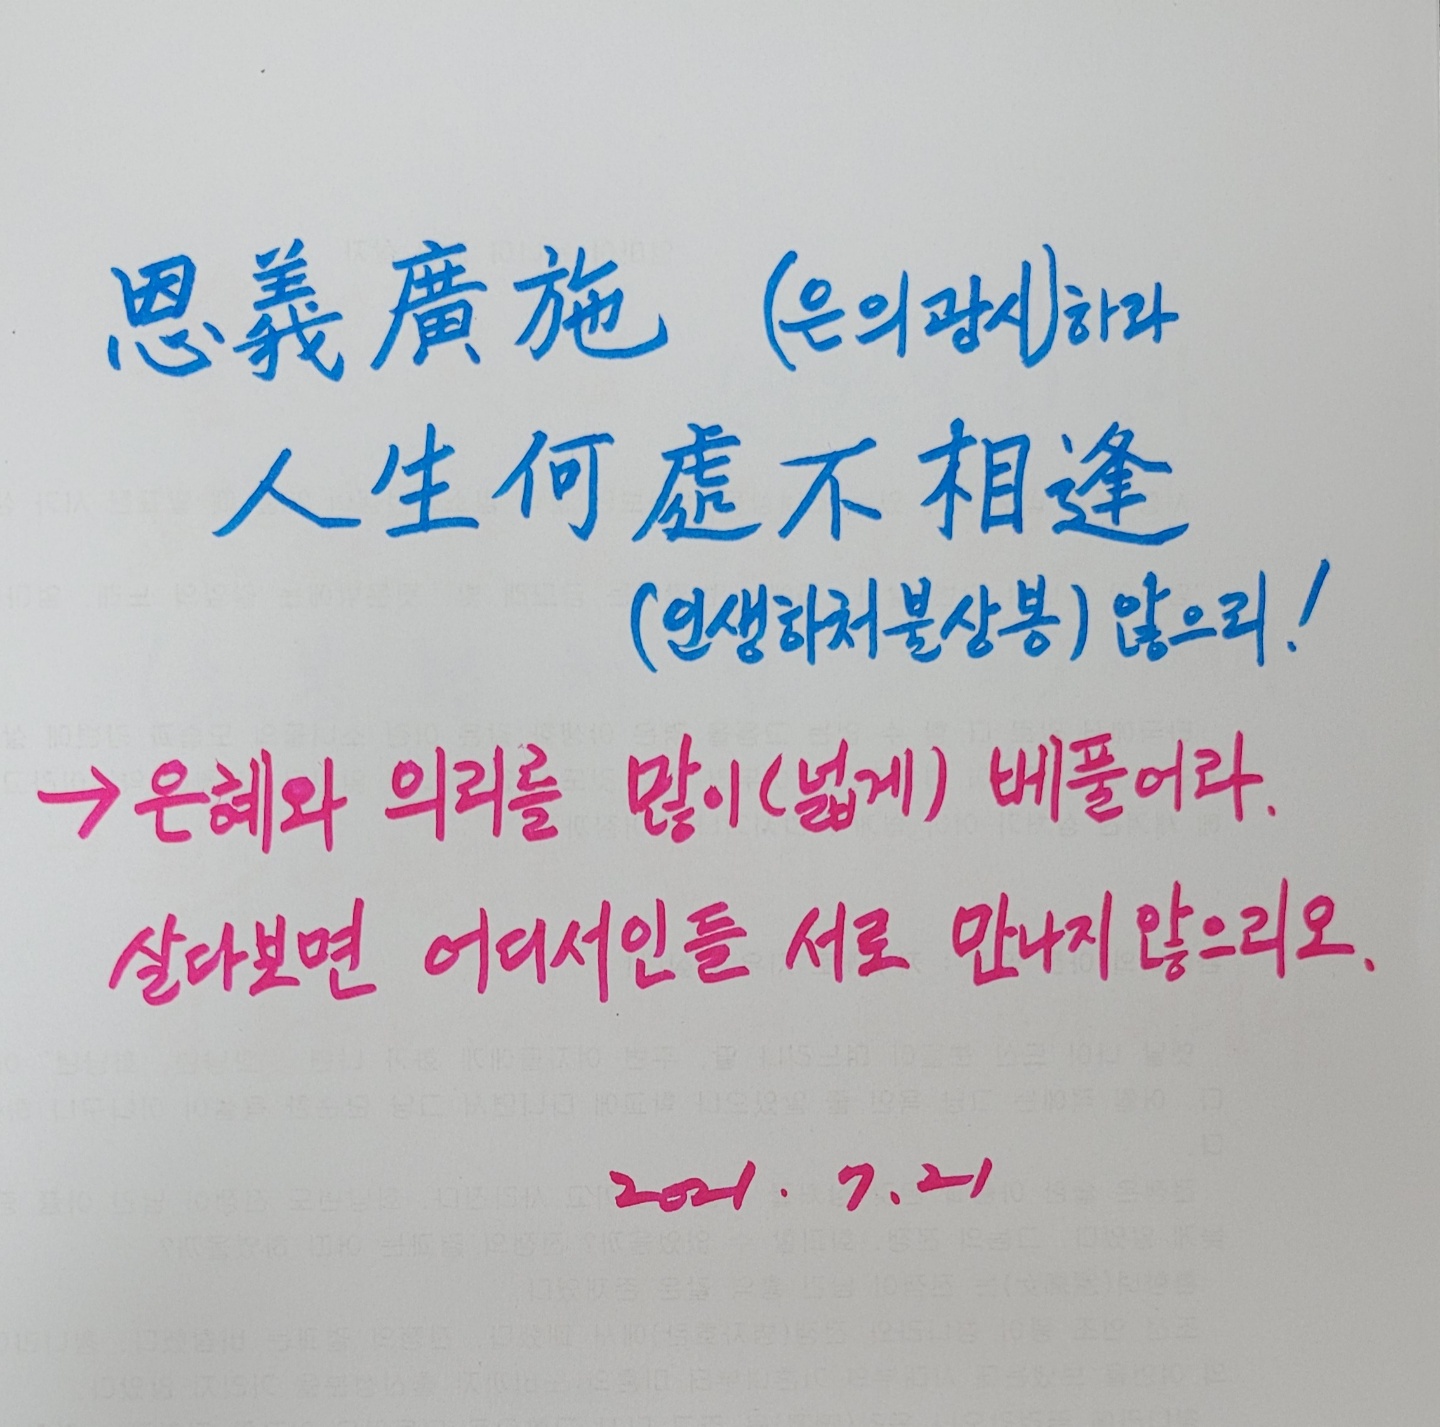 恩義廣施 (은의광시)하라
人生何處不相逢
(인생하처불상봉) 않으리!
→은혜와 의리를 많이(넓게) 베풀어라.
살다보면 어디서인들 서로 만나지 않으리오.
2021. 7. 21